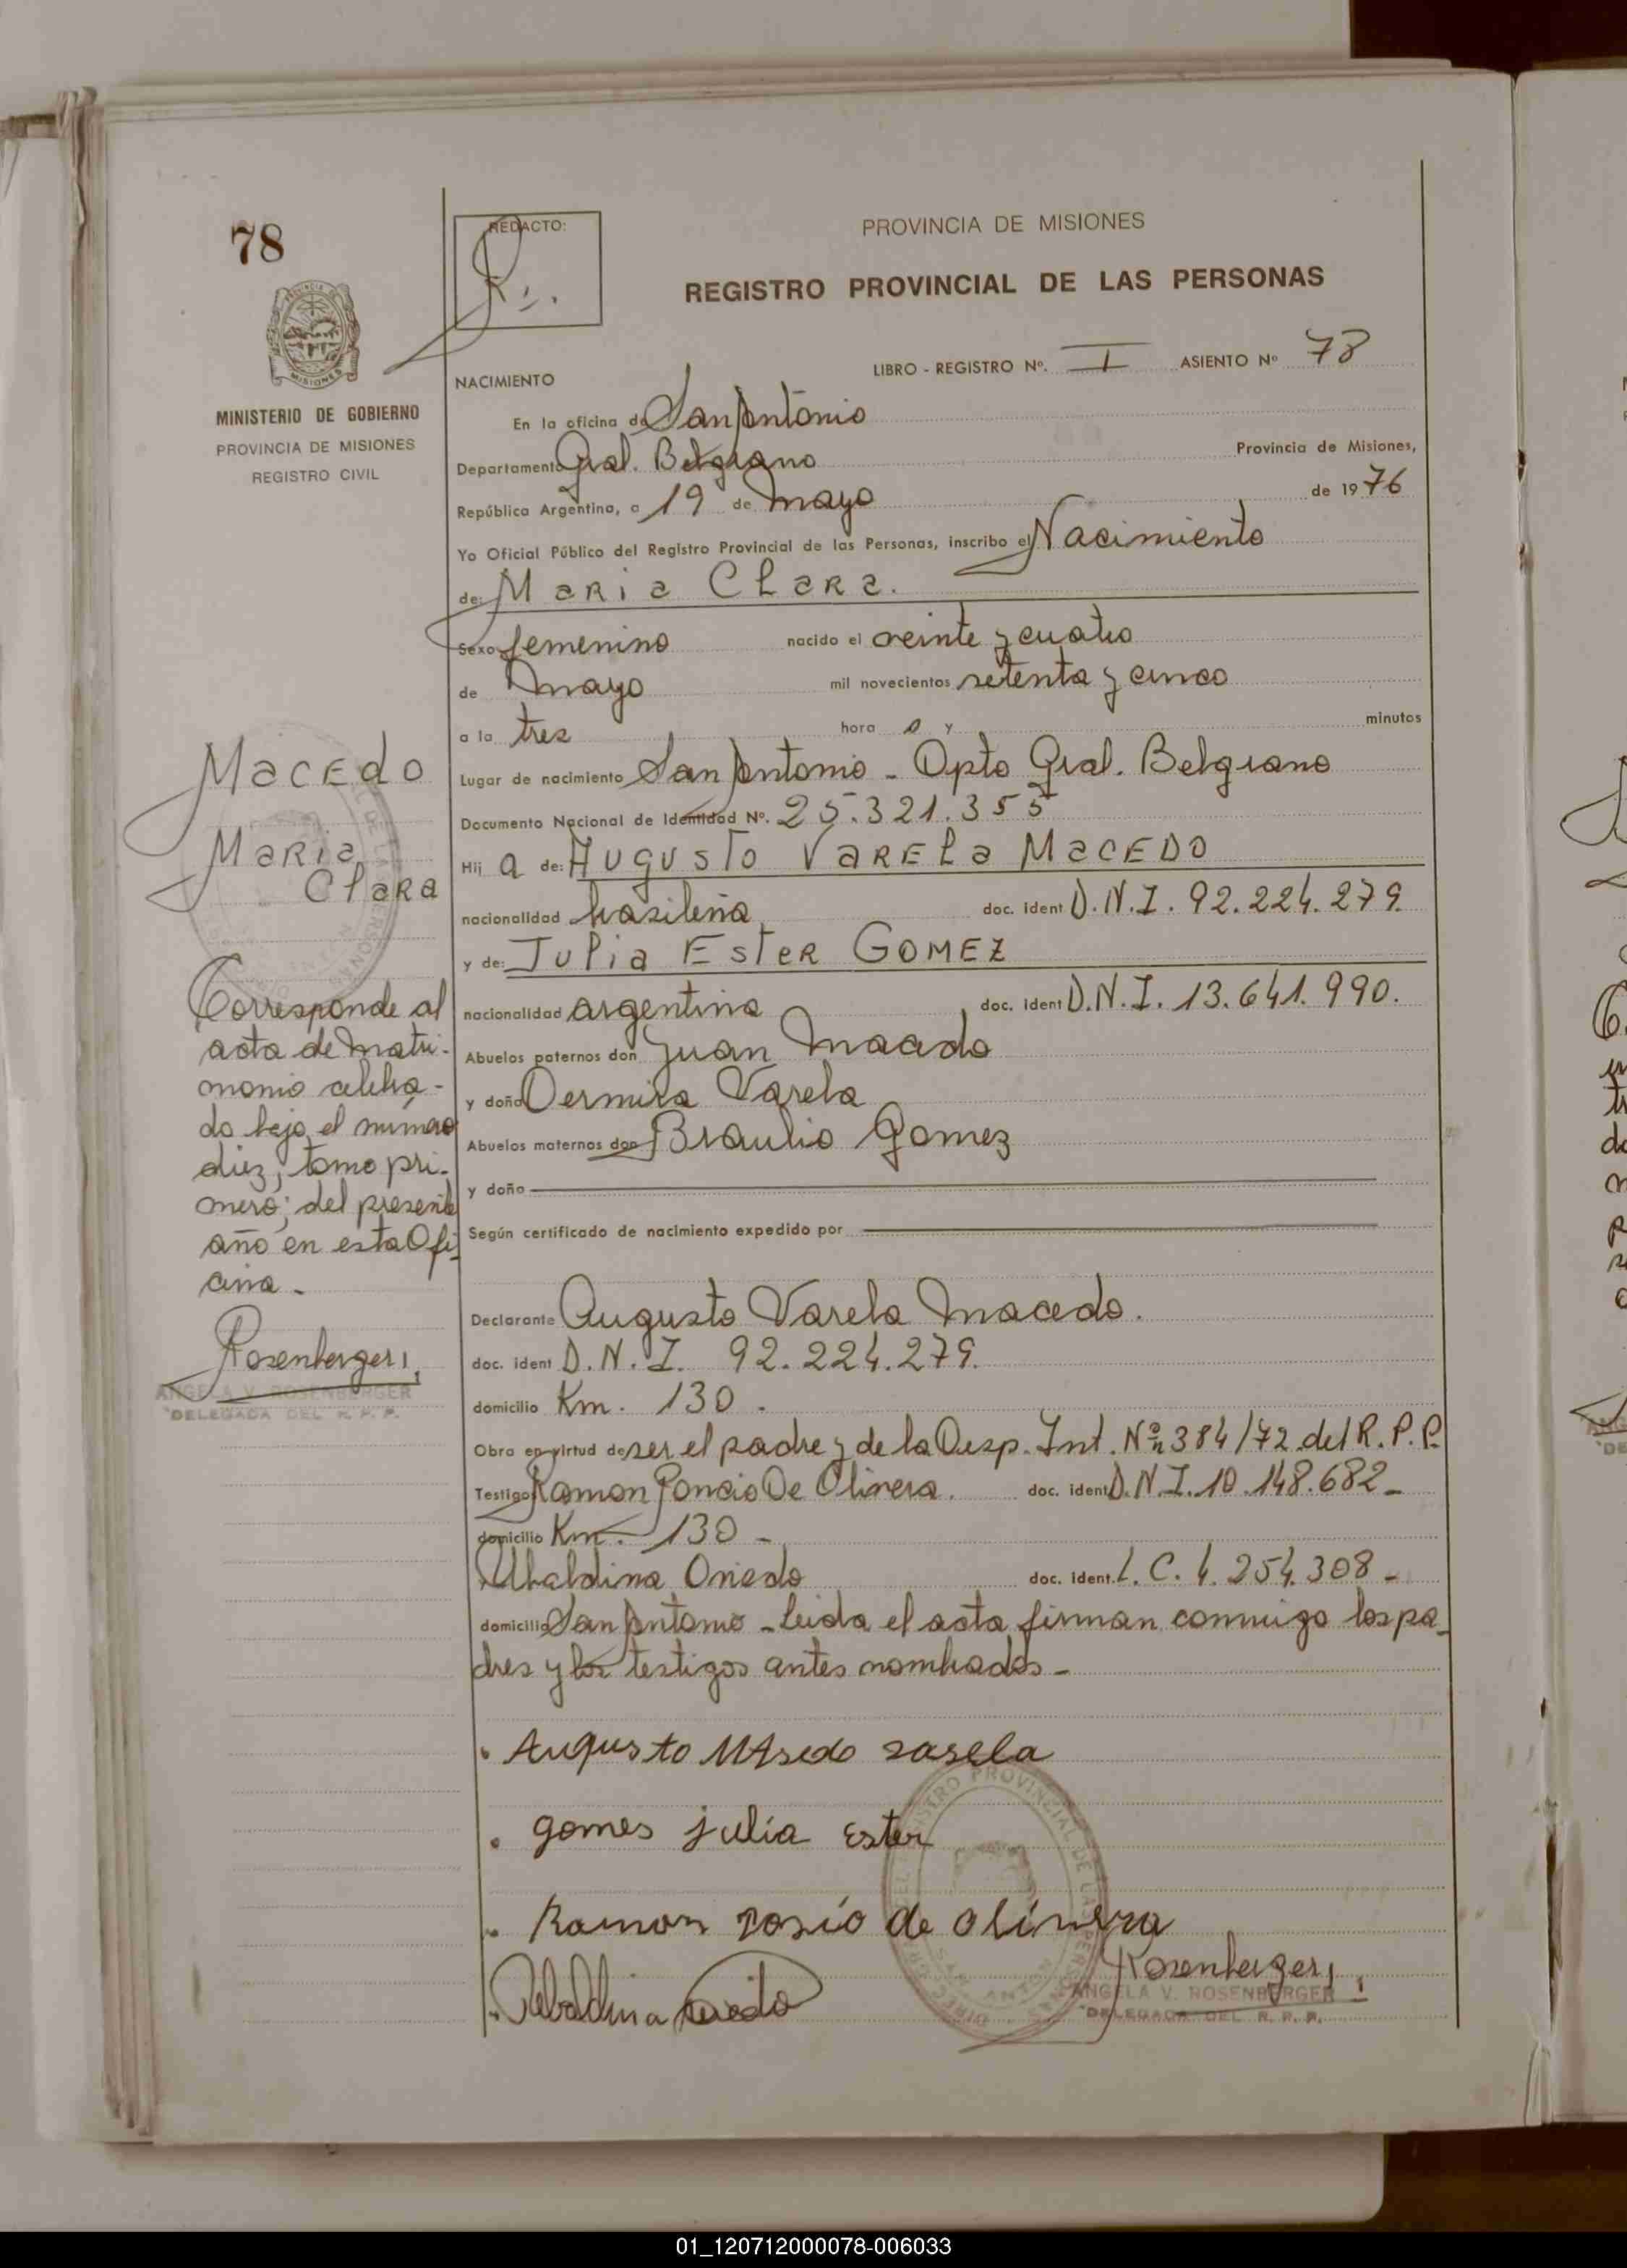 78
REDACTO:
PROVINCIA DE MISIONES
REGISTRO PROVINCIAL DE LAS PERSONAS
MISIONES
MINISTERIO DE GOBIERNO
PROVINCIA DE MISIONES
REGISTRO CIVIL
LIBRO - REGISTRO Nº. I ASIENTO Nº 78
NACIMIENTO
En la oficina de San Antonio
Departamento Gral. Belgrano Provincia de Misiones,
República Argentina, a 19 de mayo de 1976
Yo Oficial Público del Registro Provincial de las Personas, inscribo el Nacimiento
de: Maria Clara.
Sexo femenino nacido el veinte y cuatro
de mayo mil novecientos setenta y cinco
a la tres hora s y minutos
Lugar de nacimiento San Antonio - Dpto Gral. Belgrano
Documento Nacional de Identidad Nº. 25.321.355
Hij a de: Augusto Varela Macedo
nacionalidad brasileña doc. ident D.N.I. 92.224.279.
y de: Julia Ester Gomez
nacionalidad argentina doc. ident D.N.I. 13.641.990.
Abuelos paternos don Juan Macedo
y doña Varela
Abuelos maternos don Braulio Gomez
y doña
Según certificado de nacimiento expedido por
Declarante Augusto Varela Macedo.
doc. ident D.N.I. 92.224.279.
domicilio Km. 130.
Obra en virtud de ser el padre y de la Disp. Int. Nº 384/72 del R.P.P.
Testigos Ramon Poncio De Olivera. doc. ident D.N.I. 10.148.682-
domicilio Km. 130-
Ubaldina Oviedo doc. ident. L.C. 4.254.308-
domicilio San Antonio - Leida el acta firman conmigo los pa-
dres y los testigos antes nombrados-
Macedo
Maria
Clara
Corresponde al
acta de matri-
monio celebra-
do bajo el número
diez, tomo pri-
mero; del presente
año en esta Ofi-
cina-
Rosenberger
ANGELA V. ROSENBERGER
DELEGADA DEL R. P. P.
Augusto MAsedo varela
gomes julia Ester
Ramon posio de olivera
Ubaldina Oviedo
Rosenberger
ANGELA V. ROSENBERGER
DELEGADA DEL R. P. P.
01_120712000078-006033